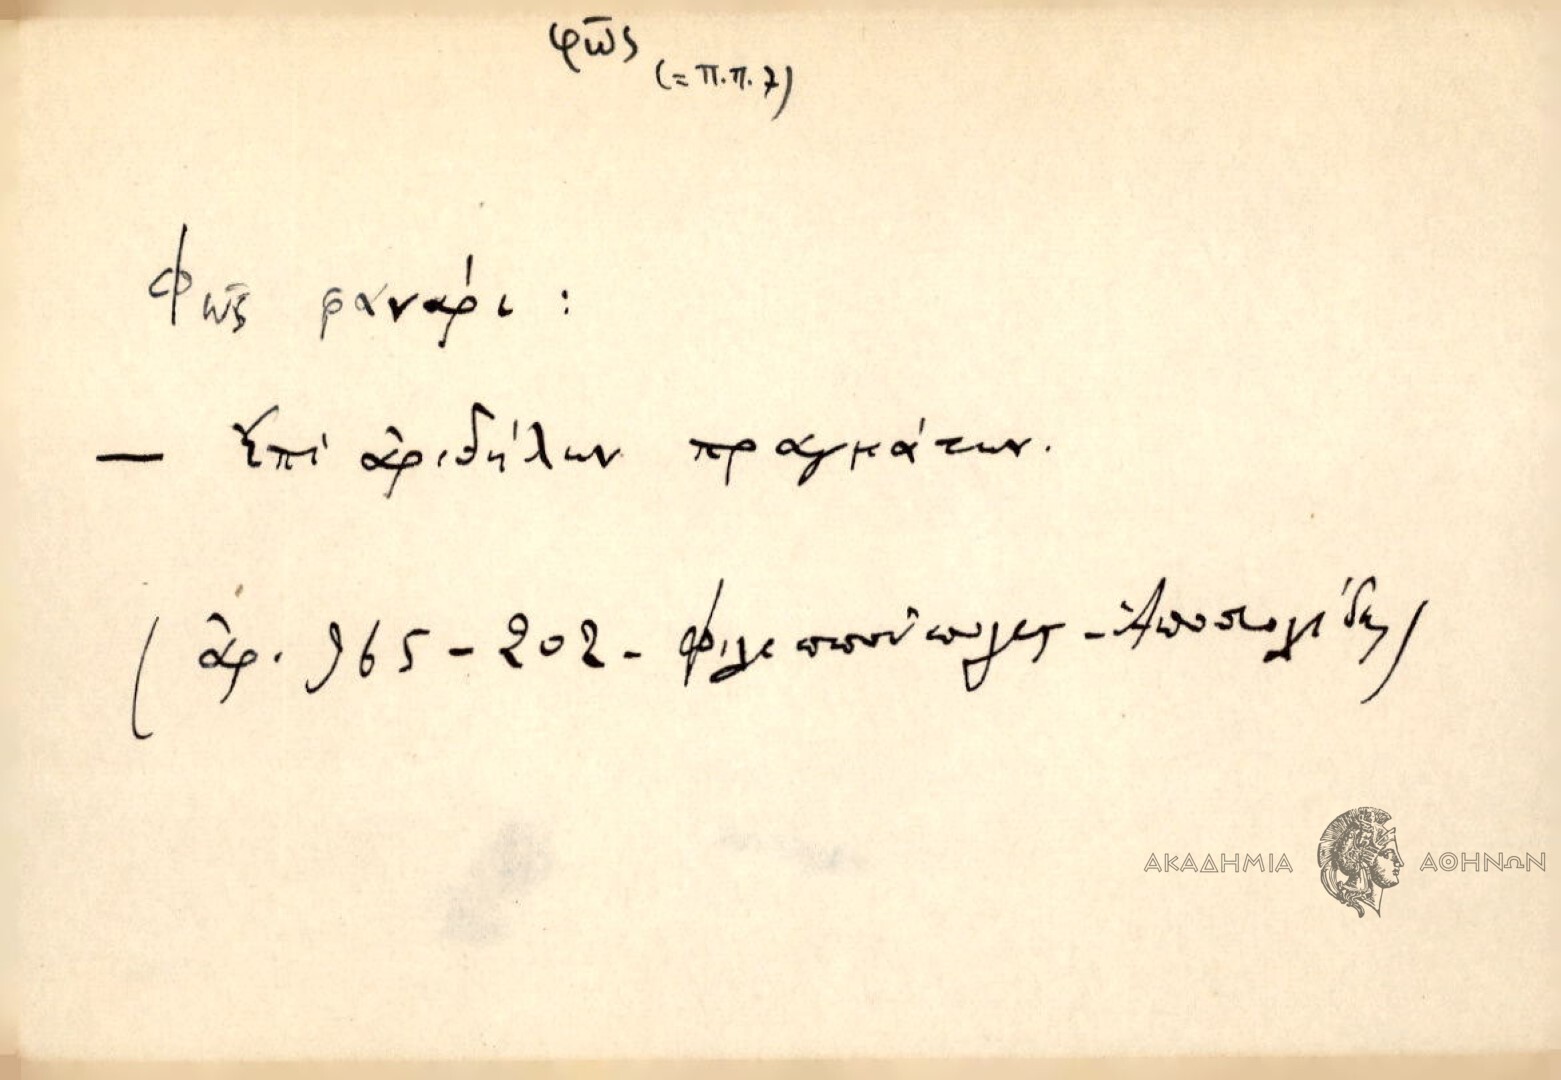 φῶς
(= π.π. 7)
Φῶς φανάρι :
— Ἐπὶ ἀριδήλων πραγμάτων.
(ἀρ. 965 - 202 - Φιλιππουπόλεως - Ἀποστολίδης)
ΑΚΑΔΗΜΙΑ ΑΘΗΝΩΝ